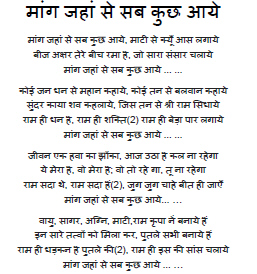 मांग जहां से सब कुछ आये
मांग जहां से सब कुछ आये, माटी से क्यूँ आस लगाये
बीज अक्षर तेरे बीच रमा है, जो सारा संसार चलाये
मांग जहां से सब कुछ आये ... ...
कोई जन धन से महान कहाये, कोई तन से बलवान कहाये
सुंदर काया शव कहलाये, जिस तन से श्री राम सिधाये
राम ही धन है, राम ही शक्ति(2) राम ही बेड़ा पार लगाये
मांग जहां से सब कुछ आये ... ...
जीवन एक हवा का झोंका, आज उठा है कल ना रहेगा
ये मेरा है, वो मेरा है; वो तो रहे गा, तू ना रहेगा
राम सदा थे, राम सदा हैं(2), जुग जुग चाहे बीत ही जाएँ
मांग जहां से सब कुछ आये... ...
वायु, सागर, अग्नि, माटी,राम कृपा नें बनाये हैं
इन सारे तत्वों को मिला कर, पुतले सभी बनाये हैं
राम ही धड़कन है पुतले की(2), राम ही इस की सांस चलाये
मांग जहां से सब कुछ आये ... ...